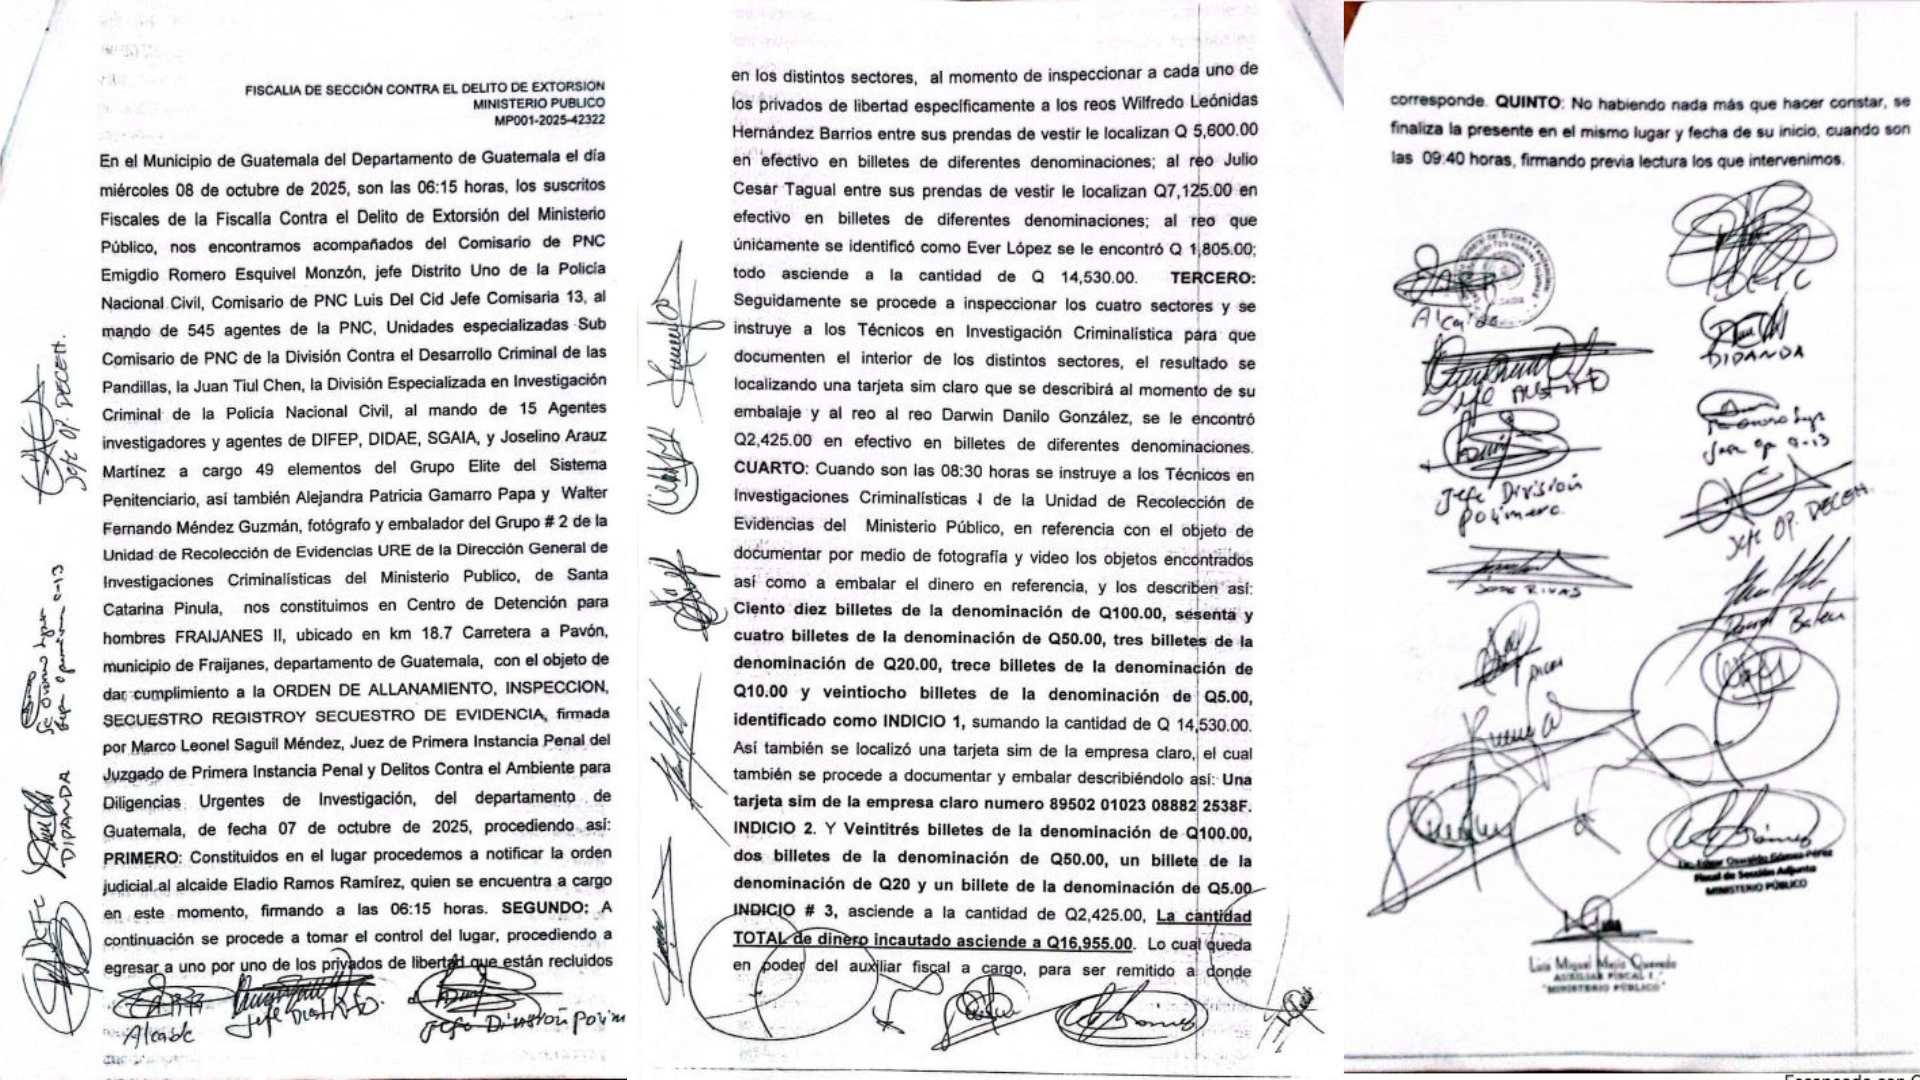 FISCALIA DE SECCIÓN CONTRA EL DELITO DE EXTORSIÓN
MINISTERIO PUBLICO
MP001-2025-42322
En el Municipio de Guatemala del Departamento de Guatemala el día
miércoles 08 de octubre de 2025, son las 06:15 horas, los suscritos
Fiscales de la Fiscalía Contra el Delito de Extorsión del Ministerio
Público, nos encontramos acompañados del Comisario de PNC
Emigdio Romero Esquivel Monzón, jefe Distrito Uno de la Policía
Nacional Civil, Comisario de PNC Luis Del Cid Jefe Comisaria 13, al
mando de 545 agentes de la PNC, Unidades especializadas Sub
Comisario de PNC de la División Contra el Desarrollo Criminal de las
Pandillas, la Juan Tiul Chen, la División Especializada en Investigación
Criminal de la Policía Nacional Civil, al mando de 15 Agentes
investigadores y agentes de DIFEP, DIDAE, SGAIA, y Joselino Arauz
Martínez a cargo 49 elementos del Grupo Elite del Sistema
Penitenciario, así también Alejandra Patricia Gamarro Papa y Walter
Fernando Méndez Guzmán, fotógrafo y embalador del Grupo # 2 de la
Unidad de Recolección de Evidencias URE de la Dirección General de
Investigaciones Criminalísticas del Ministerio Publico, de Santa
Catarina Pinula, nos constituimos en Centro de Detención para
hombres FRAIJANES II, ubicado en km 18.7 Carretera a Pavón,
municipio de Fraijanes, departamento de Guatemala, con el objeto de
dar cumplimiento a la ORDEN DE ALLANAMIENTO, INSPECCION,
SECUESTRO REGISTROY SECUESTRO DE EVIDENCIA, firmada
por Marco Leonel Saguil Méndez, Juez de Primera Instancia Penal del
Juzgado de Primera Instancia Penal y Delitos Contra el Ambiente para
Diligencias Urgentes de Investigación, del departamento de
Guatemala, de fecha 07 de octubre de 2025, procediendo así:
PRIMERO: Constituidos en el lugar procedemos a notificar la orden
judicial al alcaide Eladio Ramos Ramírez, quien se encuentra a cargo
en este momento, firmando a las 06:15 horas. SEGUNDO: A
continuación se procede a tomar el control del lugar, procediendo a
egresar a uno por uno de los privados de libertad que están recluidos
Jefe OP. DECEH.
DIPANDA
Alcaide
Jefe Distrito.
Jefe División
en los distintos sectores, al momento de inspeccionar a cada uno de
los privados de libertad específicamente a los reos Wilfredo Leónidas
Hernández Barrios entre sus prendas de vestir le localizan Q 5,600.00
en efectivo en billetes de diferentes denominaciones; al reo Julio
Cesar Tagual entre sus prendas de vestir le localizan Q7,125.00 en
efectivo en billetes de diferentes denominaciones; al reo que
únicamente se identificó como Ever López se le encontró Q 1,805.00;
todo asciende a la cantidad de Q 14,530.00. TERCERO:
Seguidamente se procede a inspeccionar los cuatro sectores y se
instruye a los Técnicos en Investigación Criminalística para que
documenten el interior de los distintos sectores, el resultado se
localizando una tarjeta sim claro que se describirá al momento de su
embalaje y al reo al reo Darwin Danilo González, se le encontró
Q2,425.00 en efectivo en billetes de diferentes denominaciones.
CUARTO: Cuando son las 08:30 horas se instruye a los Técnicos en
Investigaciones Criminalísticas I de la Unidad de Recolección de
Evidencias del Ministerio Público, en referencia con el objeto de
documentar por medio de fotografía y video los objetos encontrados
así como a embalar el dinero en referencia, y los describen así:
Ciento diez billetes de la denominación de Q100.00, sesenta y
cuatro billetes de la denominación de Q50.00, tres billetes de la
denominación de Q20.00, trece billetes de la denominación de
Q10.00 y veintiocho billetes de la denominación de Q5.00,
identificado como INDICIO 1, sumando la cantidad de Q 14,530.00.
Así también se localizó una tarjeta sim de la empresa claro, el cual
también se procede a documentar y embalar describiéndolo así: Una
tarjeta sim de la empresa claro numero 89502 01023 08882 2538F.
INDICIO 2. Y Veintitrés billetes de la denominación de Q100.00,
dos billetes de la denominación de Q50.00, un billete de la
denominación de Q20 y un billete de la denominación de Q5.00
INDICIO # 3, asciende a la cantidad de Q2,425.00, La cantidad
TOTAL de dinero incautado asciende a Q16,955.00. Lo cual queda
en poder del auxiliar fiscal a cargo, para ser remitido a donde
corresponde. QUINTO: No habiendo nada más que hacer constar, se
finaliza la presente en el mismo lugar y fecha de su inicio, cuando son
las 09:40 horas, firmando previa lectura los que intervenimos.
Alcaide
DEIC
DIPANDA
Jefe Distrito
Jefe División
Jefe OP. DECEH.
JOSE RIVAS
Fiscal de Sección Adjunto
MINISTERIO PÚBLICO
Luis Miguel Mejía Quevedo
AUXILIAR FISCAL I
"MINISTERIO PÚBLICO"